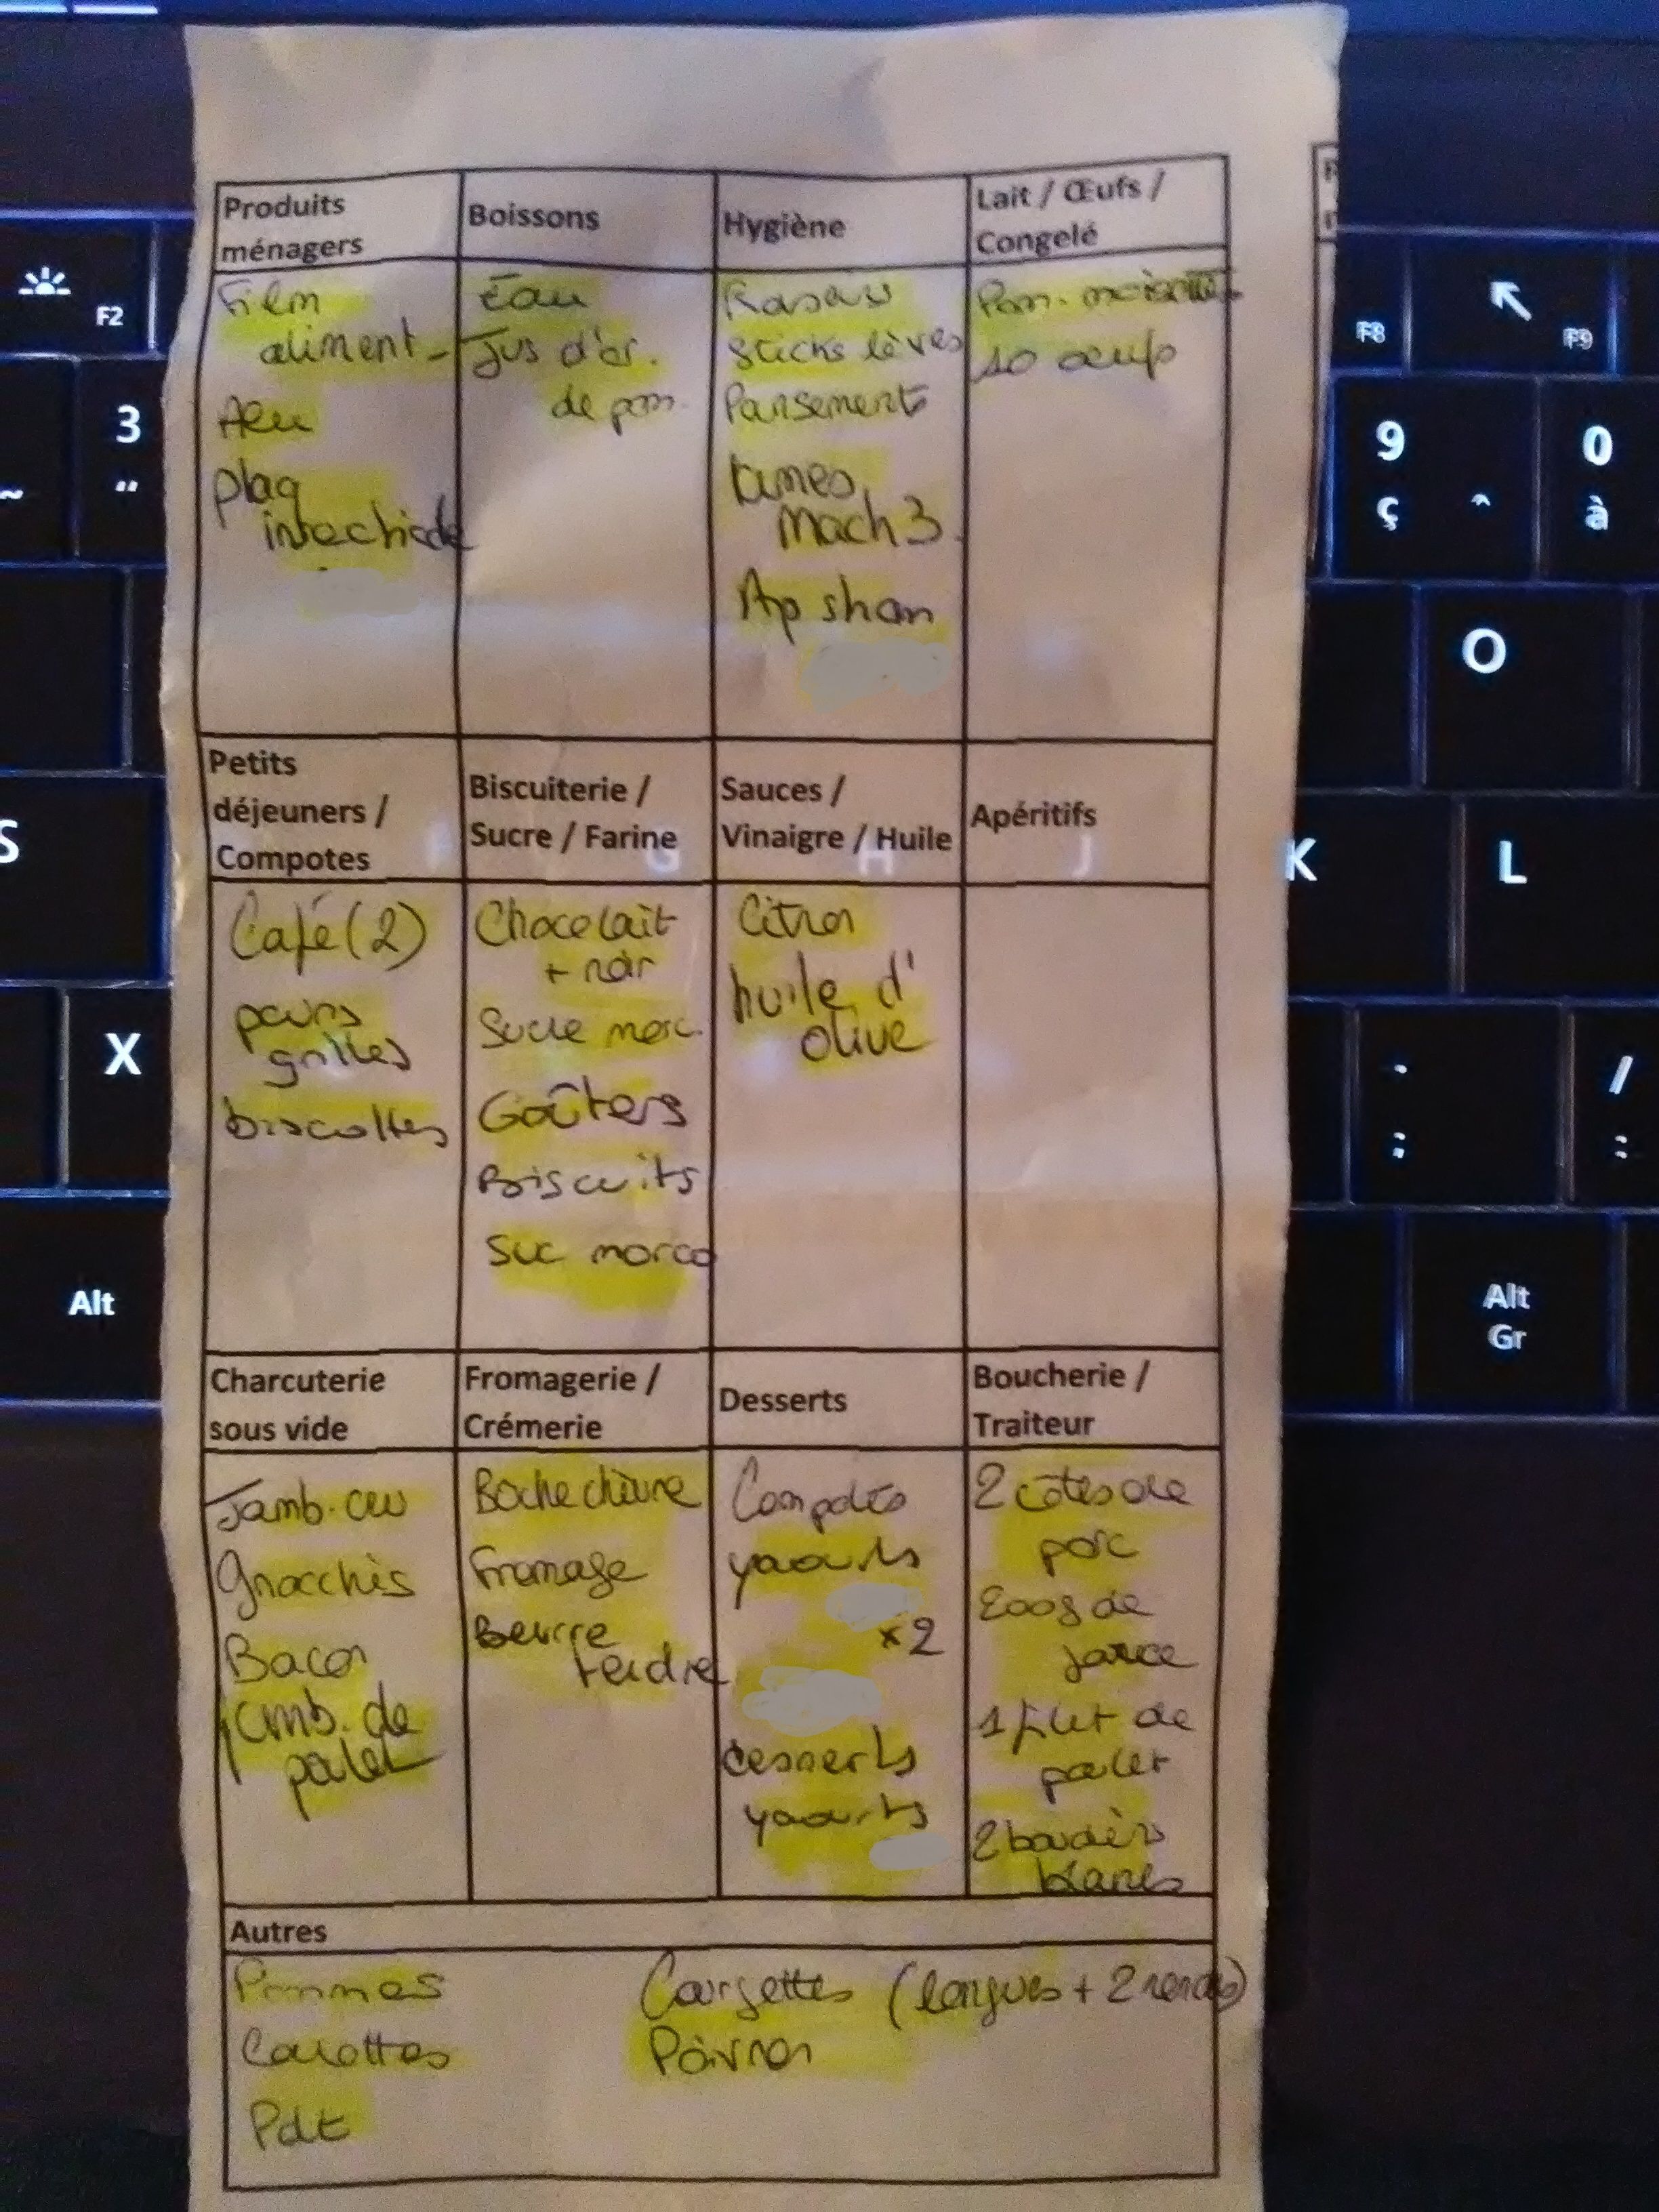 Produits
ménagers
Film
aliment-
Alu
plaq
insechicide
Boissons
Eau
Jus d'or.
de pom.
Hygiène
Rasoirs
Sticks lèvres
Pansements
lames
Mach 3
Ap sham
Lait / Œufs /
Congelé
Pom.
10 oeufs
Petits
déjeuners /
Compotes
Café (2)
pains
grillés
biscottes
Biscuiterie /
Sucre / Farine
Choco lait
+ noir
Sucre morc.
Goûters
Biscuits
Suc morco
Sauces /
Vinaigre / Huile
Citron
huile d'
olive
Apéritifs
Charcuterie
sous vide
Jamb. cru
Gnocchis
Bacon
Jamb. de
poulet
Fromagerie /
Crémerie
Bûche chèvre
Fromage
Beurre
tendre
Desserts
Compotes
yaourts
x2
desserts
yaourts
Boucherie /
Traiteur
2 côtes de
porc
200g de
farce
1 filet de
poulet
2 boudins
blancs
Autres
Pommes
Carottes
Pdt
Courgettes (longues + 2 rondes)
Poivron
F2
3
"
~
S
X
Alt
F8
F9
9
ç
^
0
à
O
K
L
G
H
J
.
;
/
:
Alt
Gr